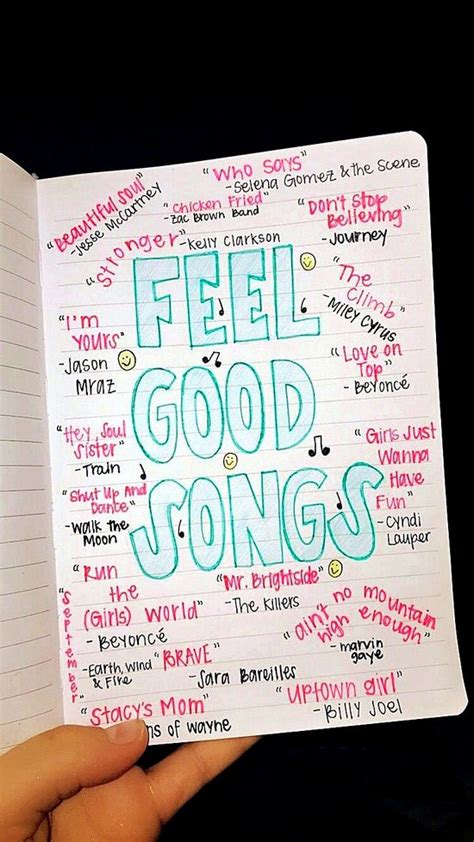 "Who Says"
- Selena Gomez & the Scene
"Beautiful Soul"
- Jesse McCartney
"Chicken Fried"
- Zac Brown Band
"Don't Stop
Believing"
- Journey
"Stronger" - Kelly Clarkson
FEEL
GOOD
SONGS
"The
Climb"
- Miley Cyrus
"I'm
Yours"
- Jason
Mraz
"Love on
Top"
- Beyoncé
"Hey, Soul
Sister"
- Train
"Girls Just
Wanna
Have
Fun"
- Cyndi
Lauper
"Shut Up And
Dance"
- Walk the
Moon
"Run
the
(Girls) World"
- Beyoncé
"Mr. Brightside"
- The Killers
"ain't no mountain
high enough"
- marvin
gaye
"September"
- Earth, Wind
& Fire
"BRAVE"
- Sara Bareilles
"Uptown girl"
- Billy Joel
"Stacy's Mom"
ns of wayne